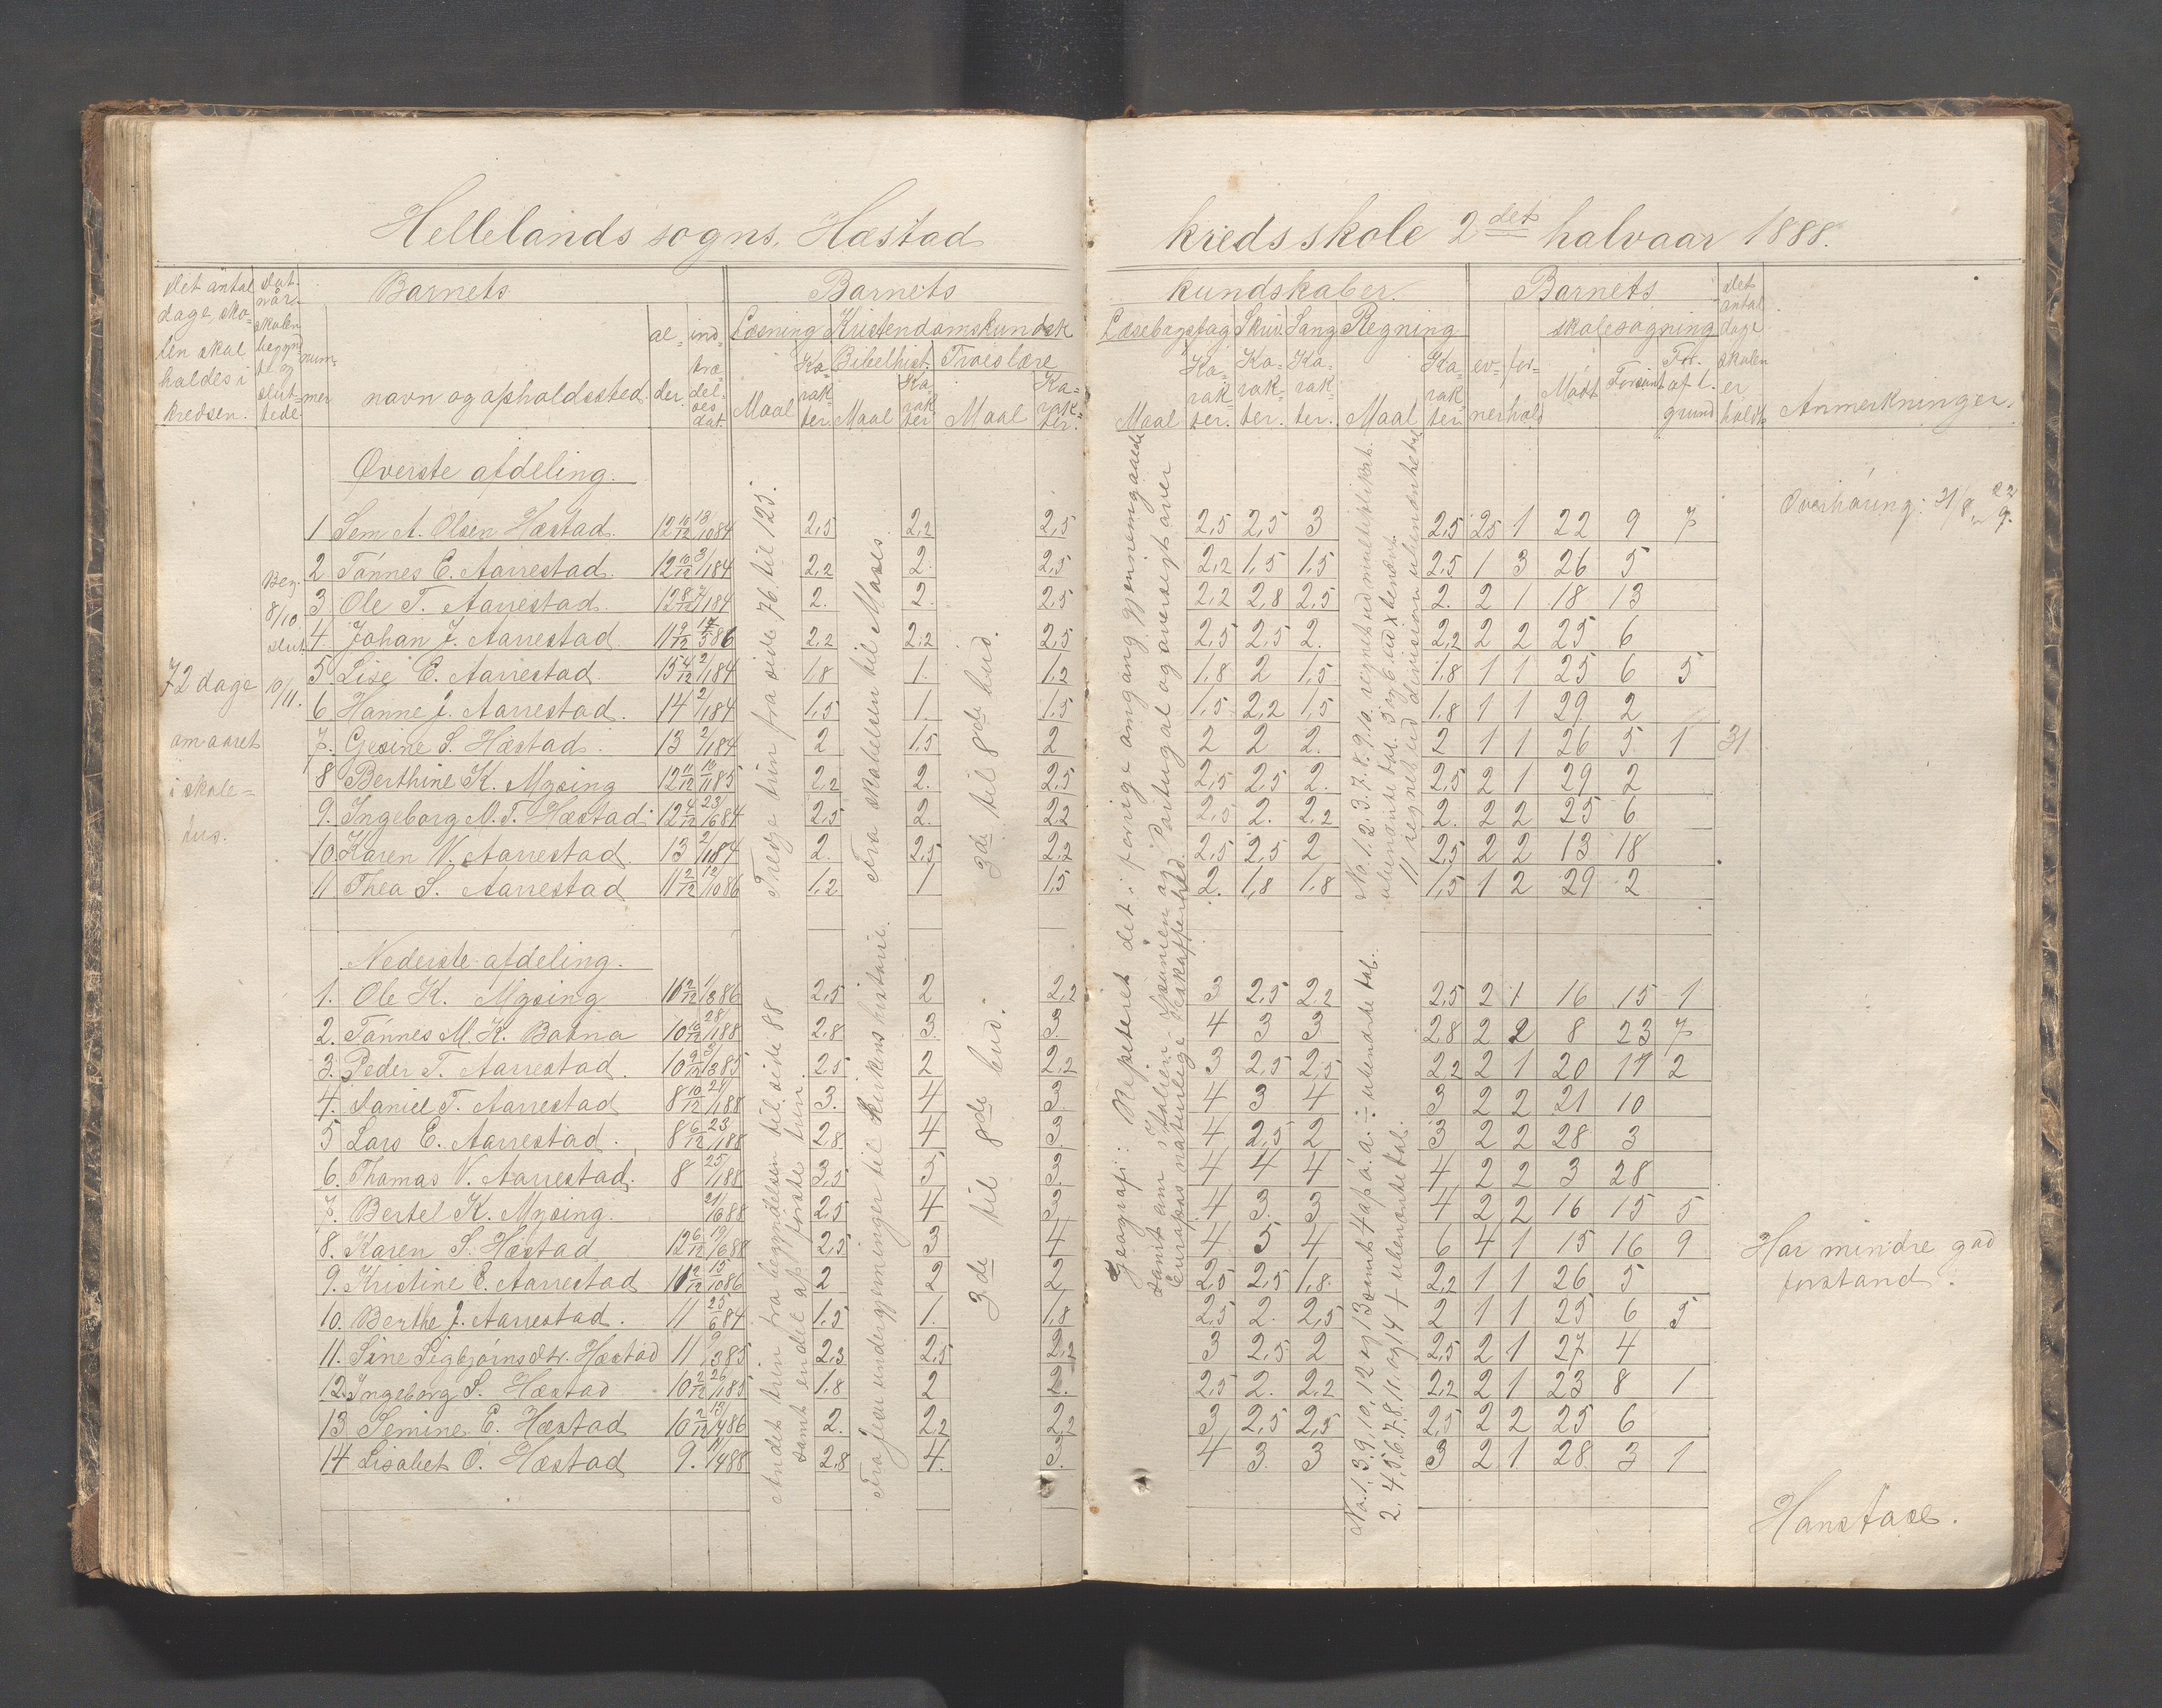 Hellelands sogns, Hæstad kredsskole 2det halvaar 1888.
det antal dage, skolen skal holdes i kredsen.
Dat. når skolen begyndte og sluttede
nummer
Barnets
navn og opholdssted
alder.
indtrædelsesdat.
Barnets kundskaber.
Læsning
Kristendomskundsk
Bibelhist.
Troeslære
Maal Karakter. Maal Karakter Maal Karakter.
Læsebogsfag Skriv. Sang Regning
Maal Karakter. Karakter. Karakter. Maal Karakter
Barnets
evner
forhold
skolesøgning
Mødt Forsømt For. af l. grund
det antal dage skolen er holdt
Anmerkninger.
72 dage
om aaret
i skole=
hus.
Beg.
8/10
slut
10/11.
Øverste afdeling.
1 Sem A. Olsen Hæstad. 12 10/12 13/10 84 2,5 2,2 2,5 2,5 2,5 3 2,5 2,5 1 22 9 7
2 Tönnes E. Aarrestad. 12 10/12 3/1 84 2,2 2. 2,5 2,2 1,5 1,5 2,5 1 3 26 5
3 Ole T. Aarrestad. 12 8/12 7/1 84 2. 2. 2,5 2,2 2,8 2,5 2. 2 1 18 13
4. Johan J. Aarrestad 11 9/12 86 2,2 2,2 2,5 2,5 2,5 2. 2,2 2 2 25 6
5 Lise E. Aarrestad 15 4/12 2/1 84 1,8 1. 1,2 1,8 2 1,5 1,8 1 1 25 6 5
6 Hanne J. Aarrestad. 14 2/1 84 1,5 1. 1,5 1,5 2,2 1,5 1,8 1 1 29 2
7. Gesine S. Hæstad. 13 2/1 84 2 1,5 2 2 2 2. 2 1 1 26 5 1 31
8 Berthine K. Mysing 12 11/12 13/11 85 2,2 2. 2,5 2,5 2,5 2. 2,5 2 1 29 2
9. Ingeborg N. T. Hæstad. 12 4/12 23/6 84 2,5 2. 2,2 2,5 2. 2,2 2. 2 2 25 6
10. Karen V. Aarrestad. 13 2/1 84 2. 2,5 2,2 2,5 2,5 2 2,5 2 2 13 18
11 Thea S. Aarrestad 11 2/12 12/10 86 1,2 1 1,5 2. 1,8 1,8 1,5 1 2 29 2
Tredge trin fra side 76 til 125.
Fra skabelsen til Moses.
3de til 8de bud.
Overhöring: 31/8, 22/9.
Nederste afdeling.
1. Ole K. Mysing 10 2/12 1/3 86 2,5 2 2,2 3 2,5 2,2 2,5 2 1 16 15 1
2. Tönnes M. K. Botna 10 10/12 28/1 88 2,8 3. 3. 4 3 3 2,8 2 2 8 23 7
3. Peder T. Aarrestad. 10 9/12 3/3 85 2,5 2 2,2 3 2,5 2,5 2,2 2 1 20 11 2
4. Daniel T. Aarrestad 8 10/12 24/1 88 3. 4 3. 4 3 4 3 2 2 21 10
5 Lars E. Aarrestad. 8 6/12 23/1 88 2,8 4 3. 4 2,5 2 3 2 2 28 3
6. Thomas V. Aarrestad. 8 25/1 88 3,5 5 3. 4 4 4 4 2 2 3 28
7. Bertel K. Mysing. 21/6 88 2,5 4 3 4 3. 3 4 2 2 16 15 5
8. Karen S. Hæstad 12 6/12 19/6 88 2,5 3 4 4 5 4 6 4 1 15 16 9
9. Kristine E. Aarrestad 10 2/12 15/10 86 2 2 2. 2,5 2,5 1,8. 2,2 1 1 26 5
10. Berthe J. Aarrestad. 11 25/6 84 1,5 1. 1,8 2,5 2. 2,5 2 1 1 25 6 5
11. Sine Sigbjörnsdtr. Hæstad 11 9/3 85 2,5 2,5 2,2 3 2,5 2 2,5 2 1 27 4
12. Ingeborg S. Hæstad 10 2/12 26/1 85 1,8 2 2. 2,5 2. 2,2 2,2 2 1 23 8 1
13 Semine E. Hæstad 10 2/12 13/4 86 2. 2,2 2,2 3 2,5 2,5 2,5 2 2 25 6
14 Lisabet O. Hæstad 9. 11/4 88 2,8 4. 3. 4 3. 3 3 2 1 28 3 1
Andet trin fra begyndelsen til side 88
samt endel af förste trin.
Fra jesu undergjerninger til Kirkens historie.
3de til 8de bud.
Geografi: Repeteret det i forrige omgang gjennemgaaede
samt om Italien, Spanien og Portugal og oversigt over
Europas naturlige beskaffenhed.
No. 1. 2. 3. 7. 8. 9. 10. regnet ud multiplikat.
ubenævnte tal. 5 og 6 ud x benævnt.
11 regnet ud division ubenævnte tal.
No. 1, 3. 9, 10, 12 og 13 samt 4 ÷ ubenævnte tal.
2. 4. 5. 6. 7. 8. 11. og 14 + ubenævnte tal.
Har mindre god
forstand.
Hans Aase.